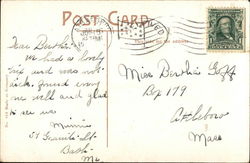 POST CARD
Dear Bertha:
We had a lovely
trip and was not
sick. found every
one well and glad
to see us
Minnie
51 Granite St
Bath
Me
Miss Bertha Goff
Box 179
Attleboro
Mass